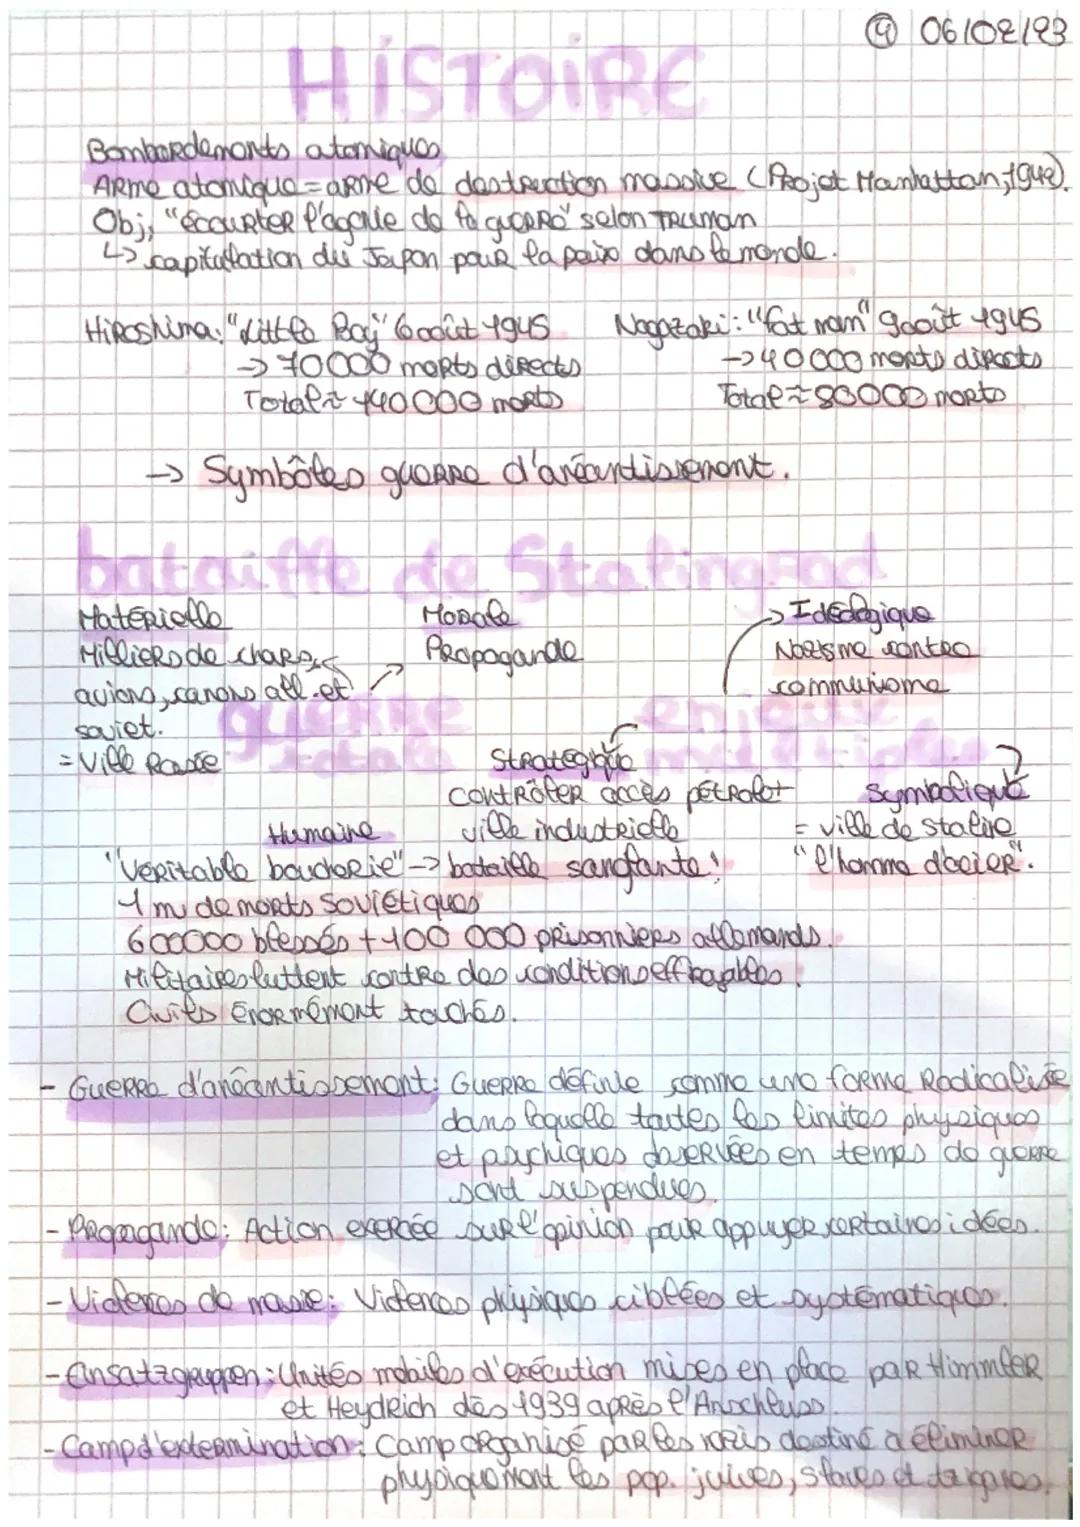 ④ 06/02/23
HiSTOiRE
Bombardements atomiques
Arme atomique = arme de destruction massive (Projet Manhattan, 1942).
Obj, "écourter l'agonie de la guerre" selon Truman
↳ capitulation du Japon pour la paix dans le monde.
Hiroshima: "Little Boy" 6 août 1945
→ 70 000 morts directs
Total ≈ 140 000 morts
Nagazaki: "fat man" 9 août 1945
→ 40 000 morts directs
Total ≈ 80 000 morts
→ Symbôles guerre d'anéantissement.
bataille de Stalingrad
Matérielle
Milliers de chars,
avions, canons all. et
soviet.
= Ville rasée
Morale
Propagande
→ Idéologique
Nazisme contre
communisme
guerre totale
enjeux multiples
Stratégique
contrôler accès pétrole +
ville industrielle
Symbolique
= ville de staline
"l'homme d'acier".
Humaine
"Véritable boucherie" → bataille sanglante!
1 m de morts Soviétiques
600000 blessés + 100 000 prisonniers allemands.
Militaires luttent contre des conditions effroyables.
Civils énormément touchés.
- Guerre d'anéantissement: Guerre définie comme une forme Radicalisée
dans laquelle toutes les limites physiques
et psychiques observées en temps de guerre
sont suspendues.
- Propagande: Action exercée sur l'opinion pour appuyer certaines idées.
- Violences de masse: Violences physiques ciblées et systématiques.
- Einsatzgruppen: Unités mobiles d'exécution mises en place par Himmler
et Heydrich dès 1939 après l'Anschluss.
- Camp d'extermination: Camp organisé par les nazis destiné à éliminer
physiquement les pop. juives, slaves et tziganes.